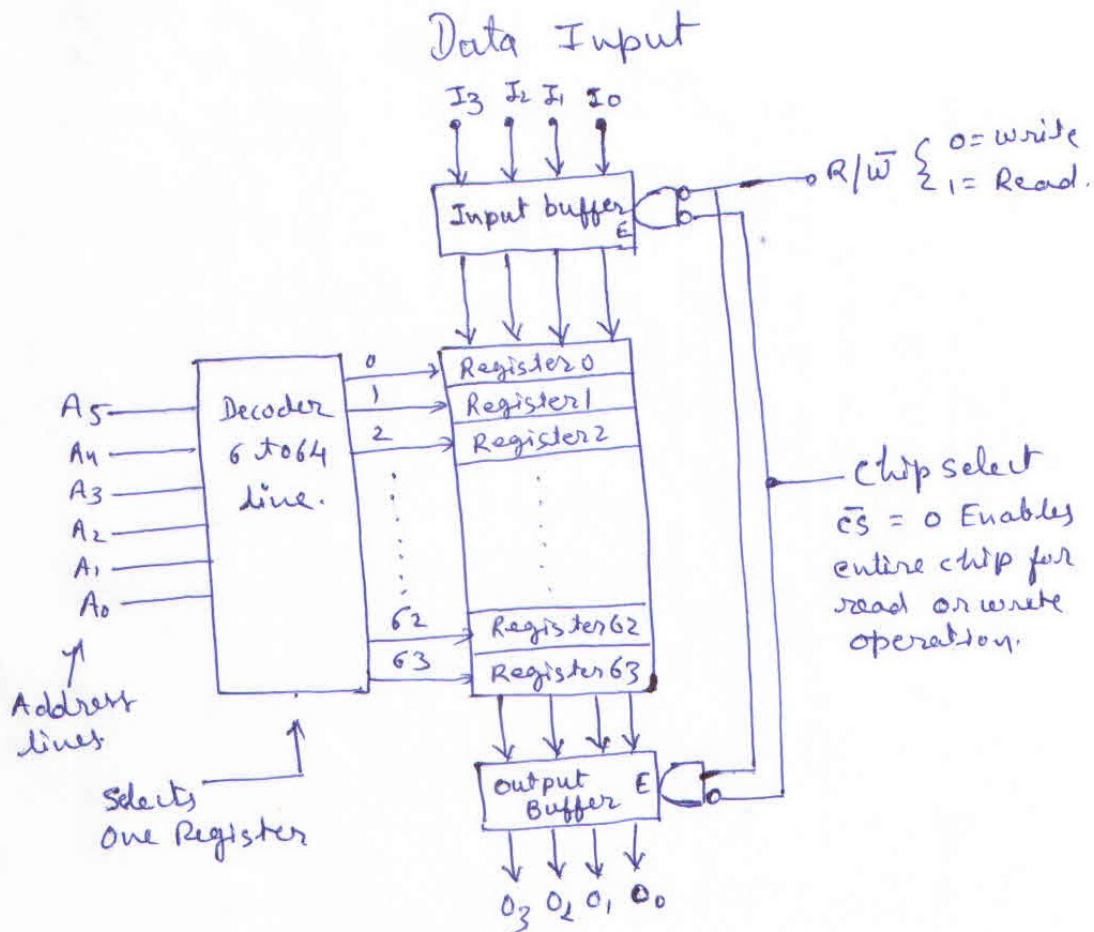 Data Input
I3 I2 I1 I0
R/W̅ { 0 = write
1 = Read.
Input buffer
E
Decoder
6 to 64
line.
A5
A4
A3
A2
A1
A0
0
1
2
62
63
Register 0
Register 1
Register 2
Register 62
Register 63
Chip select
C̅S̅ = 0 Enables
entire chip for
read or write
operation.
Address
lines
Selects
One Register
Output
Buffer
E
O3 O2 O1 O0